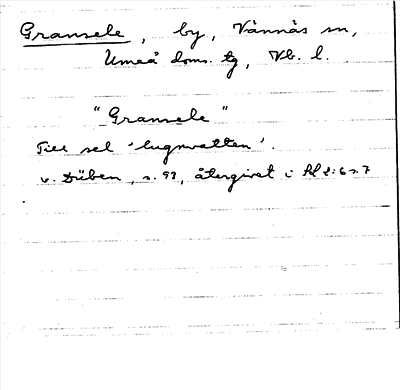 Gransele, by, Vännäs sn,
Umeå doms. tg, Vb. l.
"Gransele"
Till sel 'lugnvatten'.
v. Düben, s. 93, återgivet i